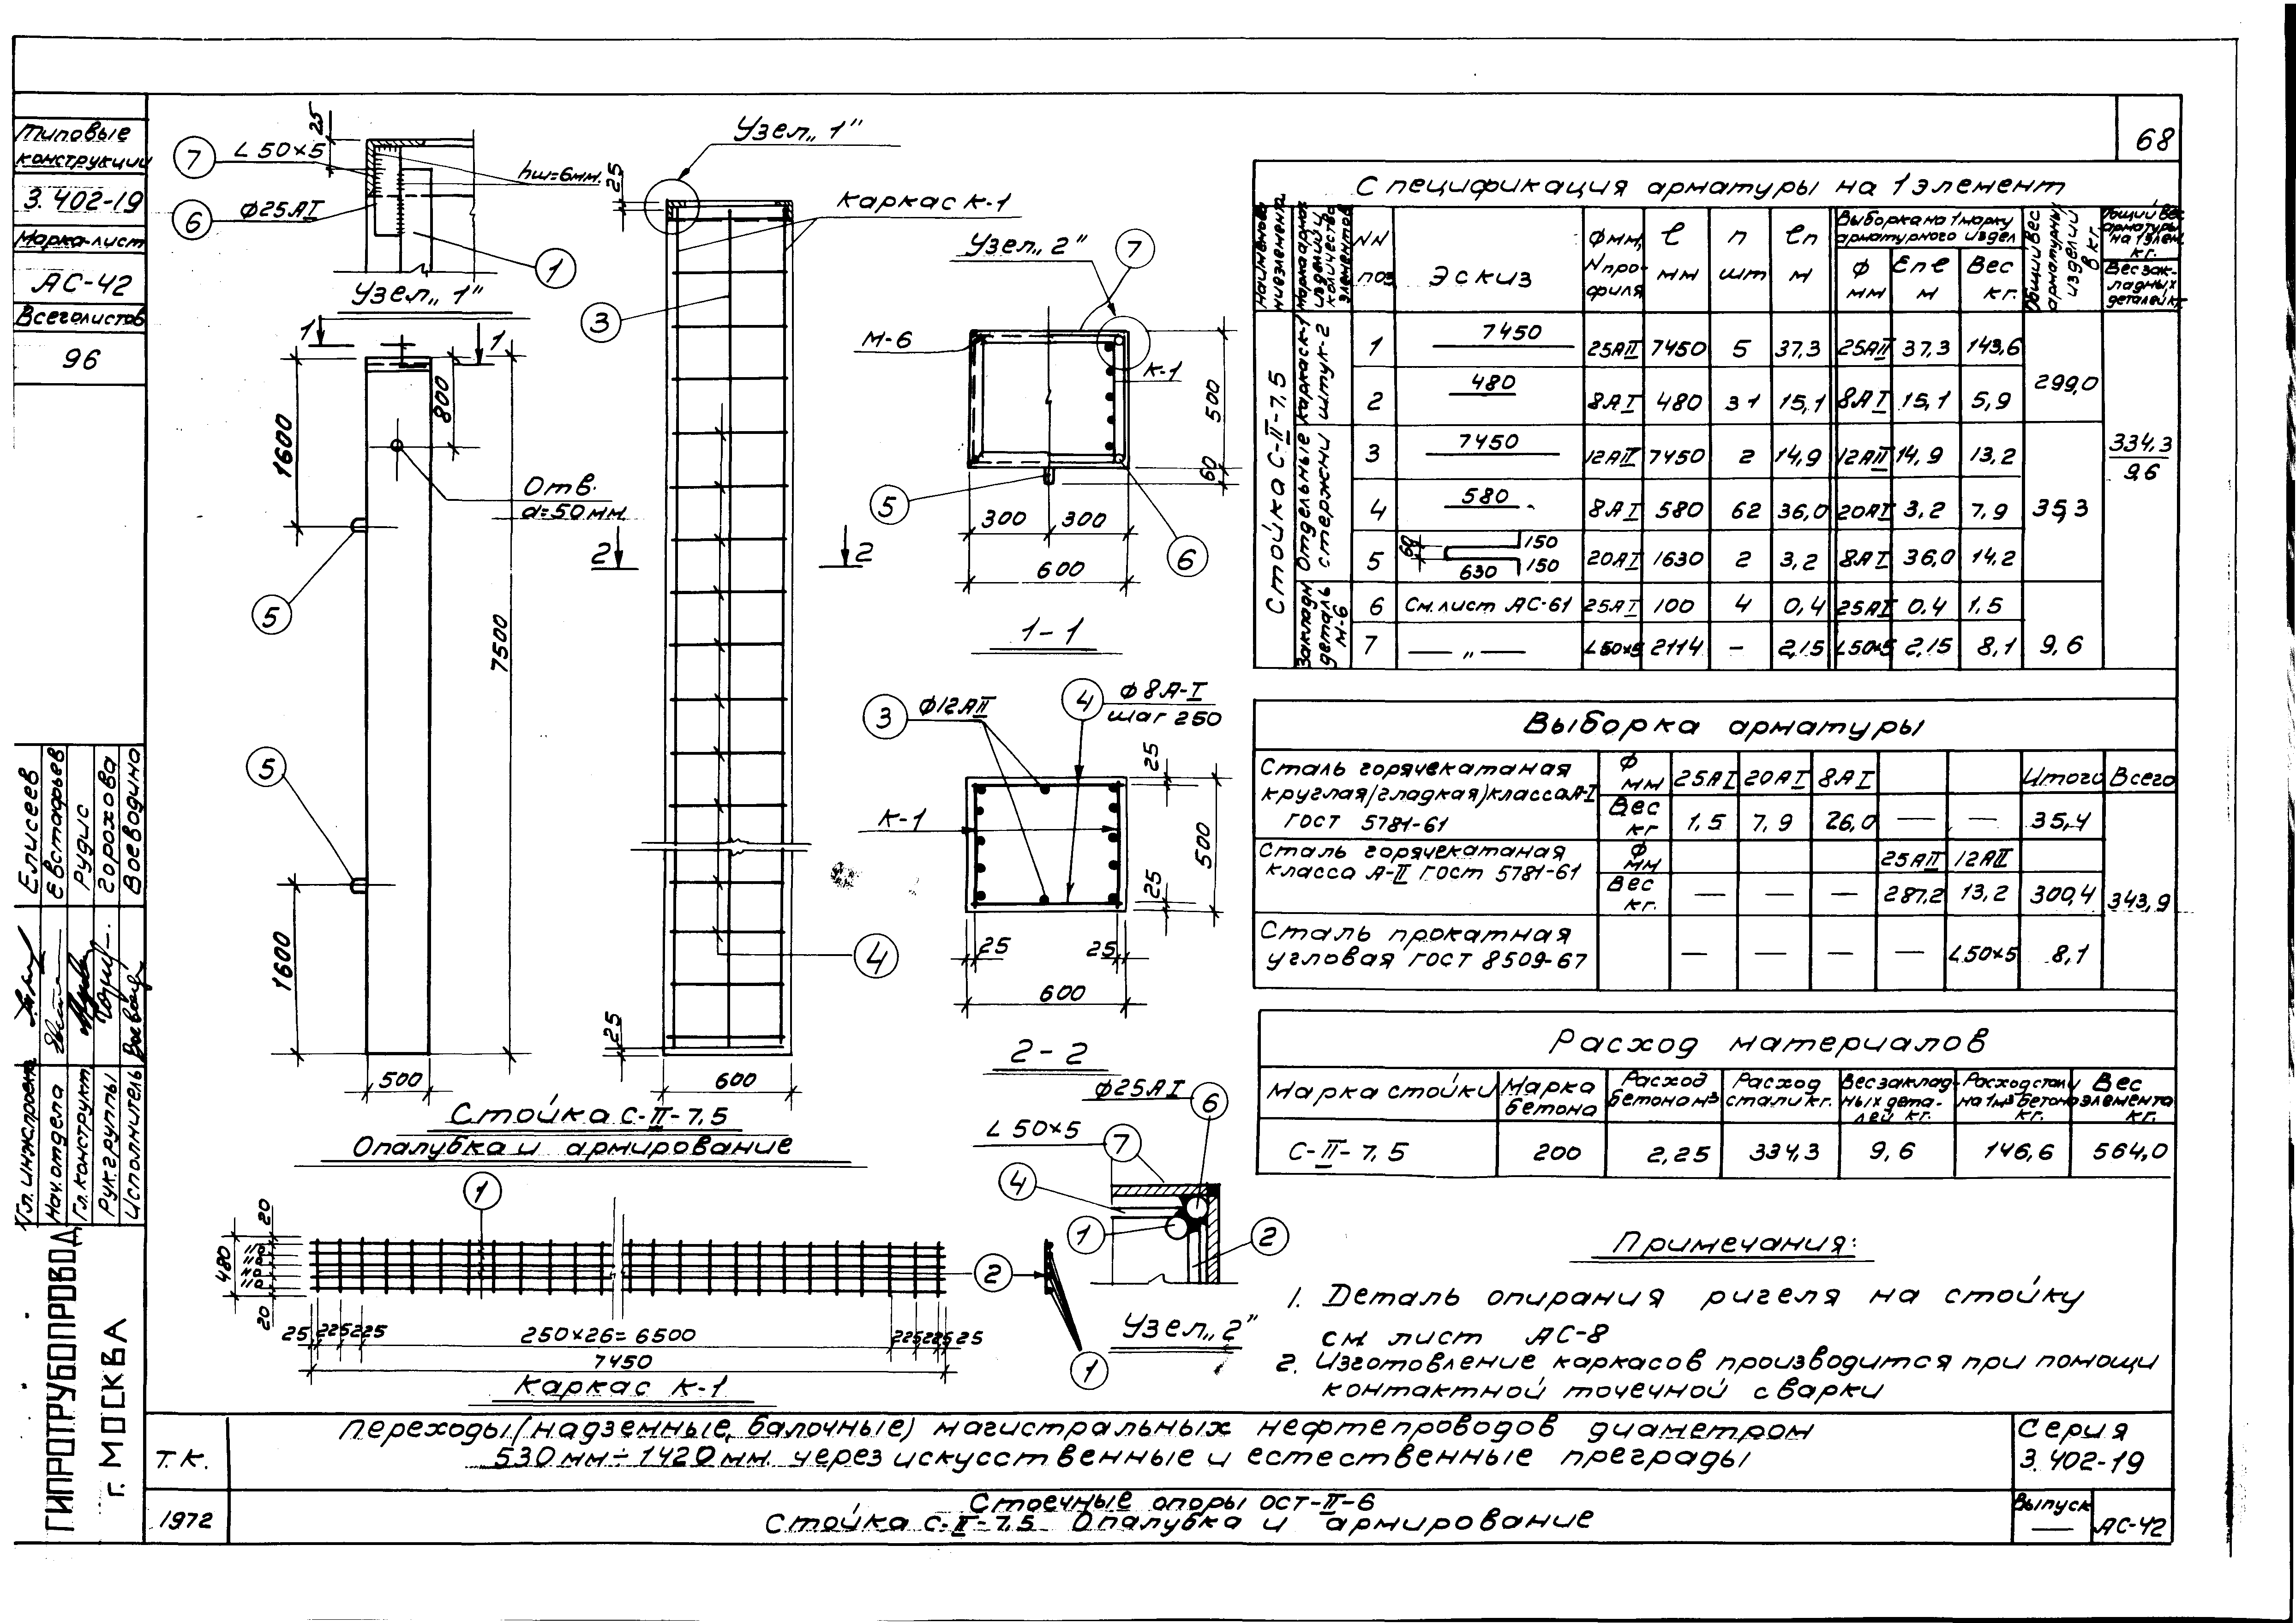 68
Типовые
конструкции
3.402-19
Марка-лист
АС-42
Всего листов
96
Елисеев
Евстафьев
Рудис
Горохова
Воеводино
Гл. инж. проекта
Нач. отдела
Гл. конструкт.
Рук. группы
Исполнитель
ГИПРОТРУБОПРОВОД
г. МОСКВА
25
7
L 50×5
hш=6мм.
6
Ф25АI
1
Узел „1"
1
1
1600
800
7500
Отв.
d=50 мм.
5
5
1600
500
Узел „1"
25
Каркас К-1
3
2
2
4
25
600
Стойка С-II-7,5
Опалубка и армирование
Узел „2"
7
М-6
К-1
500
60
5
300
300
6
600
1-1
3
Ф12АII
4
Ф8А-I
шаг 250
25
К-1
500
25
25
25
600
2-2
Ф25АI
6
L 50×5
7
4
1
2
Узел „2"
1
480
20
110
110
110
110
20
2
25
225
225
250×26=6500
225
225
25
7450
1
Каркас К-1
Спецификация арматуры на 1 элемент
NN
поз
Эскиз
Фмм,
Nпро-
филя
ℓ
мм
n
шт
ℓn
м
Выборка на 1 марку
арматурного издел
Ф
мм
м
Вес
кг.
Общий вес
арматурных
изделий
в кг.
Общий вес
арматуры
на 1 элем.
кг.
Вес зак-
ладных
деталей кг
Стойка С-II-7,5
Каркас К-1
штук-2
1 7450 25АII 7450 5 37,3 25АII 37,3 143,6
2 480 8АI 480 31 15,1 8АI 15,1 5,9
299,0
Отдельные
стержни
3 7450 12АII 7450 2 14,9 12АII 14,9 13,2
4 580 8АI 580 62 36,0 20АI 3,2 7,9
35,3
5 60 630 150 150 20АI 1630 2 3,2 8АI 36,0 14,2
334,3
9,6
Закладн
деталь
М-6
6 См. лист АС-61 25АI 100 4 0,4 25АI 0,4 1,5
7 — „ — L50×5 2114 - 2,15 L50×5 2,15 8,1
9,6
Выборка арматуры
Сталь горячекатаная
круглая/гладкая/класса А-I
ГОСТ 5781-61
Ф
мм 25АI 20АI 8АI Итого Всего
Вес
кг 1,5 7,9 26,0 — — 35,4
Сталь горячекатаная
класса А-II ГОСТ 5781-61
Ф
мм 25АII 12АII
Вес
кг. — — — 287,2 13,2 300,4
343,9
Сталь прокатная
угловая ГОСТ 8509-67
— — — — L50×5 8,1
Расход материалов
Марка стойки
Марка
бетона
Расход
бетона м³
Расход
стали кг.
Вес заклад-
ных дета-
лей кг.
Расход стали
на 1м³ бетона
кг.
Вес
элемента
кг.
С-II-7,5 200 2,25 334,3 9,6 146,6 564,0
Примечания:
1. Деталь опирания ригеля на стойку
см лист АС-8
2. Изготовление каркасов производится при помощи
контактной точечной сварки
Т.К.
1972
Переходы/надземные, балочные) магистральных нефтепроводов диаметром
530мм÷1420мм. через искусственные и естественные преграды
Стоечные опоры ОСТ-II-6
Стойка С-II-7,5 Опалубка и армирование
Серия
3.402-19
Выпуск
—
АС-42